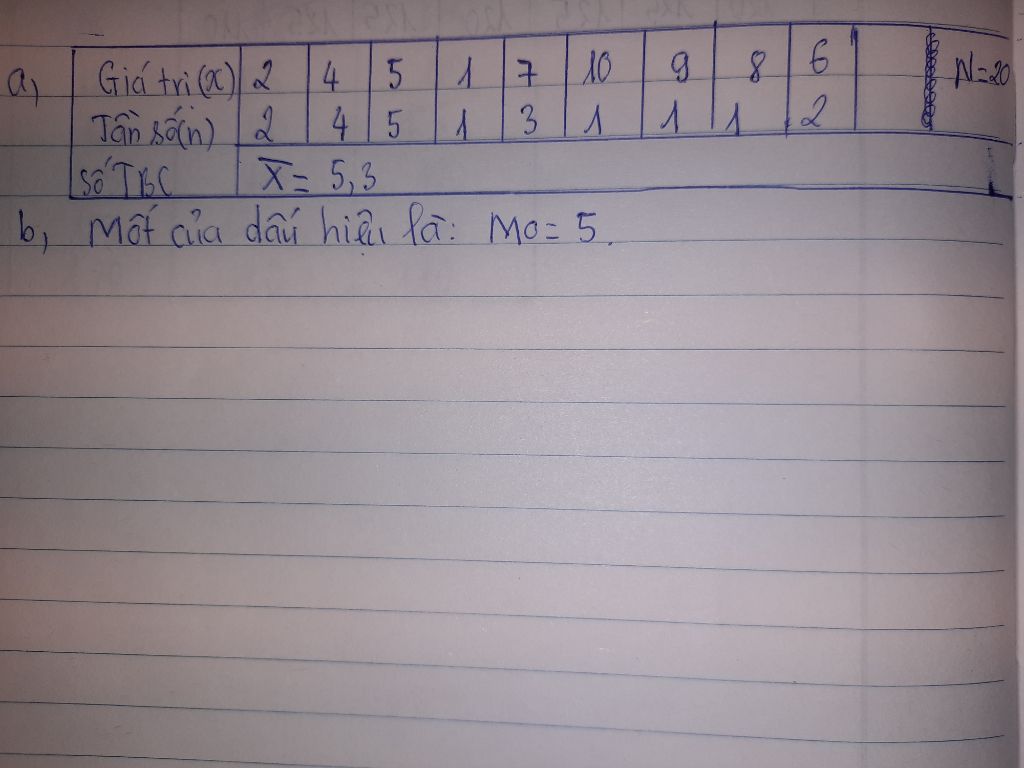 a, Giá trị(x) 2 4 5 1 7 10 9 8 6 N=20
Tần số(n) 2 4 5 1 3 1 1 1 2
số TBC X̅= 5,3
b, Mốt của dấu hiệu là: Mo= 5.